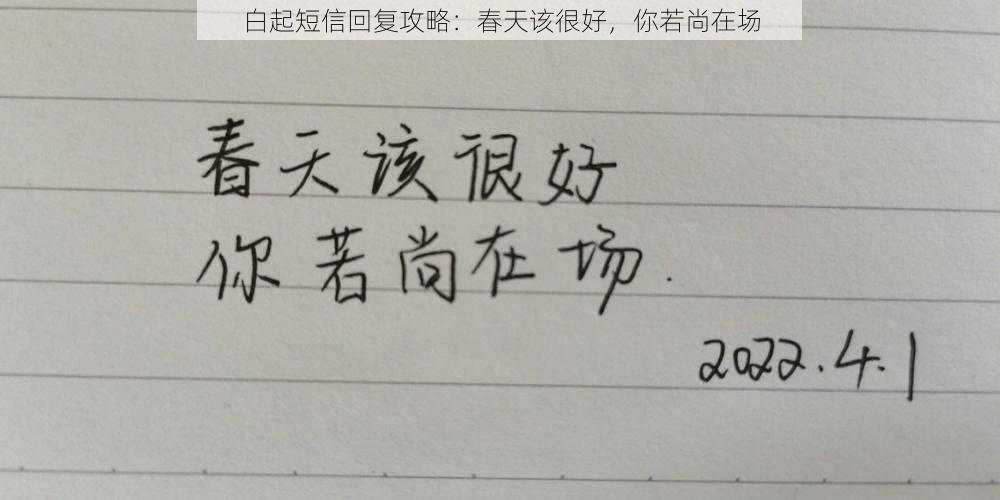 白起短信回复攻略：春天该很好，你若尚在场
春天该很好
你若尚在场.
2022.4.1